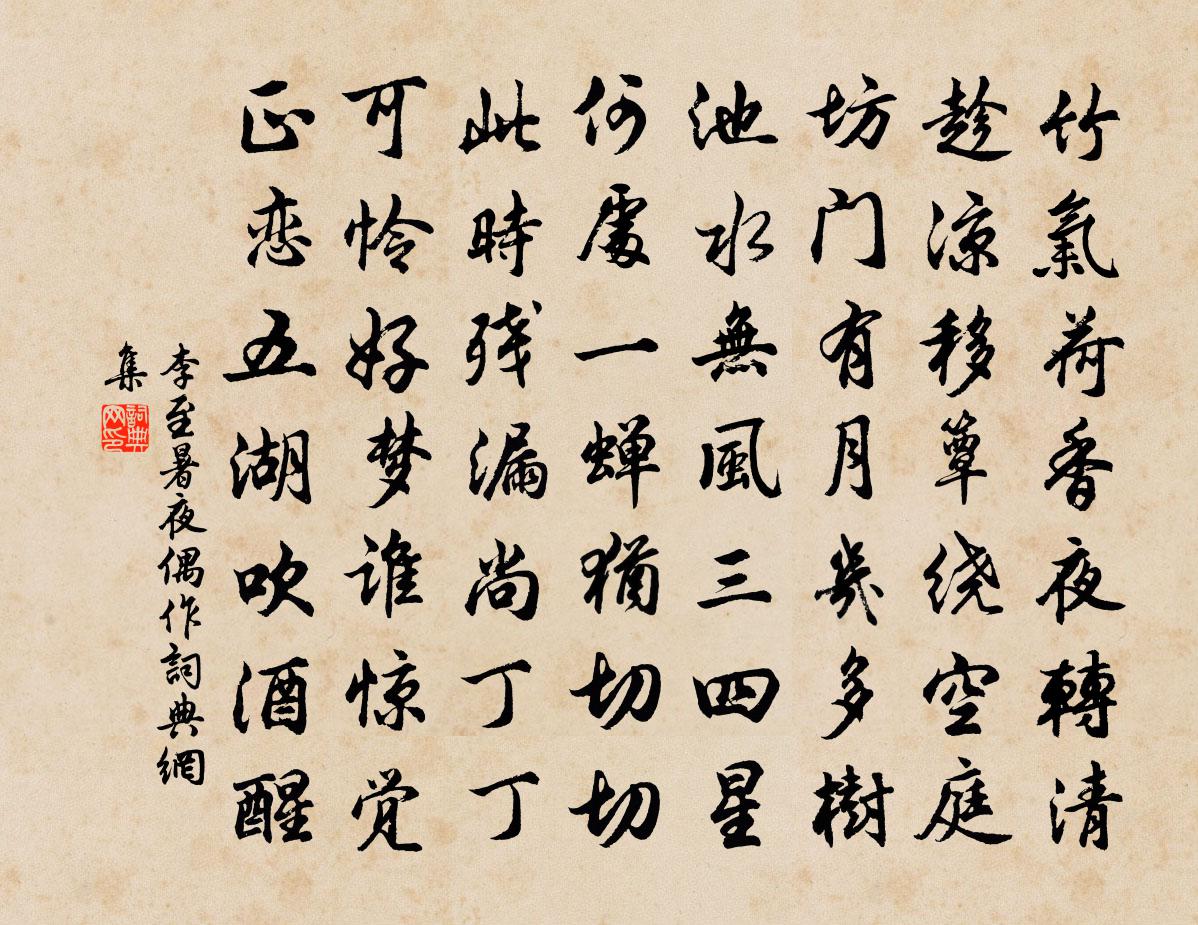 竹氣荷香夜轉清
趁涼移簟绕空庭
坊门有月幾多樹
池水無風三四星
何處一蝉猶切切
此時残漏尚丁丁
可怜好梦谁惊觉
正恋五湖吹酒醒
李至暑夜偶作詞典網
集
詞典
网印